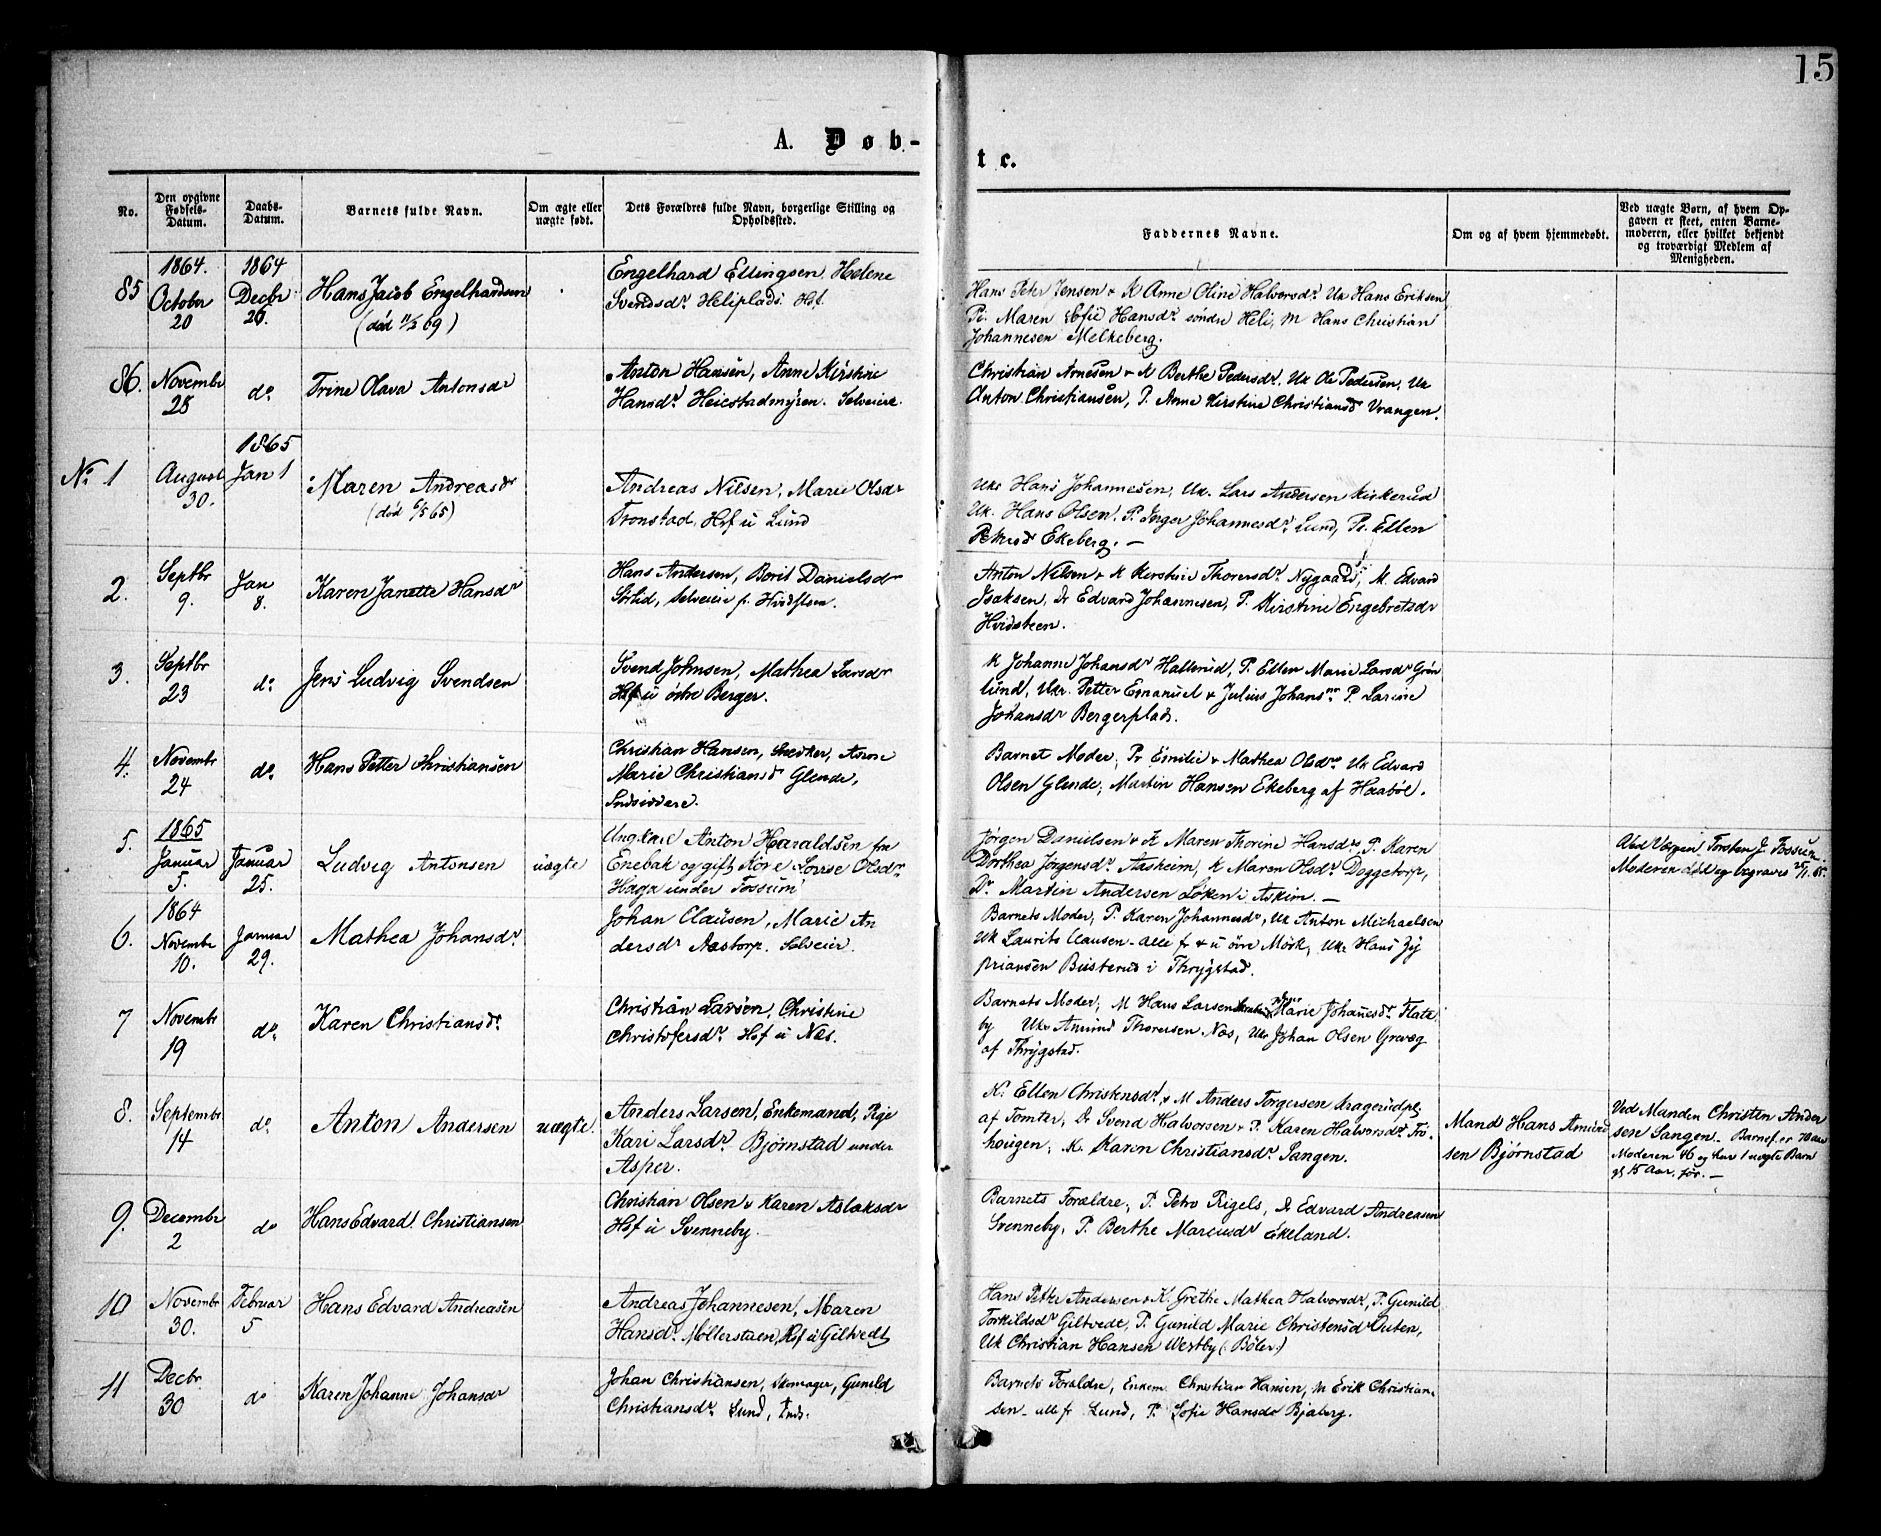 15
A. Døb-
tc.
No.
Den opgivne Fødsels-Datum.
Daabs-Datum.
Barnets fulde Navn.
Om ægte eller uægte født.
Dets Forældres fulde Navn, borgerlige Stilling og Opholdssted.
Faddernes Navne.
Om og af hvem hjemmedøbt.
Ved uægte Børn, af hvem Op-
gaven er skeet, enten Barne-
moderen, eller hvilket bekjendt
og troværdigt Medlem af
Menigheden.
85
1864.
October
20
1864
Decbr
26.
Hans Jacob Engelhardsen
(død 11/3 69)
Engelhard Ellingsen, Helene
Svendsdr. Heliplads. Hsf.
Hans Petr Jensen & K Anne Oline Halvorsdr. Uk Hans Eriksen
Pi. Maren Sofie Hansdr. søndre Heli, M Hans Christian
Johannesen Melkeberg.
86.
Novembr
28
do.
Trine Olava Antonsdr
Anton Hansen, Anne Kirstine
Hansdr. Heiestadmyren. Selveier.
Christian Arnesen & K Berthe Pedersdr. Uk Ole Pedersen, Uk
Anton Christiansen, P. Anne Kirstine Christiansd Vrangen.
No. 1
August
30.
1865
Jan 1
Maren Andreasdr
(død 6/5 65)
Andreas Nilsen, Marie Olsdr
Tronstad, Hsf u Lund
Uk Hans Johannesen, Uk. Lars Andersen Kirkerud
Uk. Hans Olsen, P. Inger Johannesdr. Lund, Pi. Ellen
Petersdr Ekeberg. —
2.
Septbr
9.
Jan
8.
Karen Janette Hansdr
Hans Andersen, Borit Danielsdr
Sørlid, Selveier p. Hvidsteen.
Anton Nilsen & K Kirstine Thorersdr. Nygaard, M. Edvard
Isaksen, Dr Edvard Johannesen, P. Kirstine Engebretsdr
Hvidsteen.
3.
Septbr
23
do.
Jens Ludvig Svendsen
Svend Johnsen, Mathea Larsdr
Hsf u østre Berger.
K Johanne Johansdr Hallerud, P. Ellen Marie Larsdr Grøn
lund, Uk. Petter Emanuel & Julius Johans. P. Larine
Johansdr Bergerplads.
4.
Novembr
24
do.
Hans Petter Christiansen
Christian Hansen, Snedker, Anne
Marie Christiansd Glende,
Indsiddere.
Barnet Moder, Pr Emilie & Mathea Olsdr. Uk Edvard
Olsen Glende, Martin Hansen Ekeberg af Haabøl.
5.
1865
Januar
5.
Januar
25.
Ludvig Antonsen
uægte
Ungkarl Anton Haraldsen fra
Enebak og gift Kone Lovise Olsdr.
Haga under Fossum
Jørgen Danielsen & K Maren Thorine Hansdr. P. Karen
Dorthea Jørgensdr. Aasheim, K Maren Olsdr. Doggetorp,
Dr. Martin Andersen Løken i Askim. —
Torsten J. Fossum.
Moderen død og begraves 25/1 65.
6.
1864
Novembr
10.
Januar
29.
Mathea Johansdr.
Johan Clausen, Marie An
dersdr Aastorp. Selveier.
Barnets Moder, P. Karen Johannesdr, Uk Anton Michaelsen
Uk Laurits Clausen - alle fr & u øvre Mørk, Uk Hans Zy
priansen Busterud i Thrygstad.
7
Novembr
19
do.
Karen Christiansdr.
Christian Larsen, Christine
Christofersdr. Hsf u Næs.
Barnets Moder, M Hans Larsen Marie Johannesdr. Flate
by Uk Amund Thoresen Næs, Uk Johan Olsen Grevæg
af Thrygstad.
8.
Septembr
14
do.
Anton Andersen
uægte.
Anders Larsen, Enkemand, Pige
Kari Larsdr. Bjørnstad under
Asper.
K. Ellen Christensdr. & M Anders Torgersen Kragerudpl.
af Tomter, Dr Svend Halvorsen & P. Karen Halvorsdr. Frø-
hougen, K. Karen Christiansdr. Sangen.
Mand Hans Amund
sen Bjørnstad
Ved Manden Christen Ander
sen Sangen. Barnef. er 70 aar
Moderen 46 og har 1 uægte Barn
15 Aar, før. —
9.
Decembr
2
do
Hans Edvard Christiansen
Christian Olsen & Karen Aslaksdr
Hsf u Svenneby.
Barnets Forældre, P. Petro Rigels, Dr Edvard Andreasen
Svenneby, P. Berthe Mariusdr Ekeland.
10
Novembr
30.
Februar
5
Hans Edvard Andreasen
Andreas Johannesen, Maren
Hansdr. Møllerstuen, Hsf u Giltvedt
Hans Petter Andersen & K. Grethe Mathea Halvorsdr, P. Gunild
Torkildsdr Giltvedt, P. Gunild Marie Christensd Outen,
Uk Christian Hansen Westby (: Bøler:)
11
Decbr
30
do
Karen Johanne Johansdr
Johan Christiansen, Skomager, Gunild
Christiansdr. Lund, Inds.
Barnets Forældre, Enkem. Christian Hansen, M Erik Christian-
sen - alle fr Lund, P. Sofie Hansdr Bjaberg.